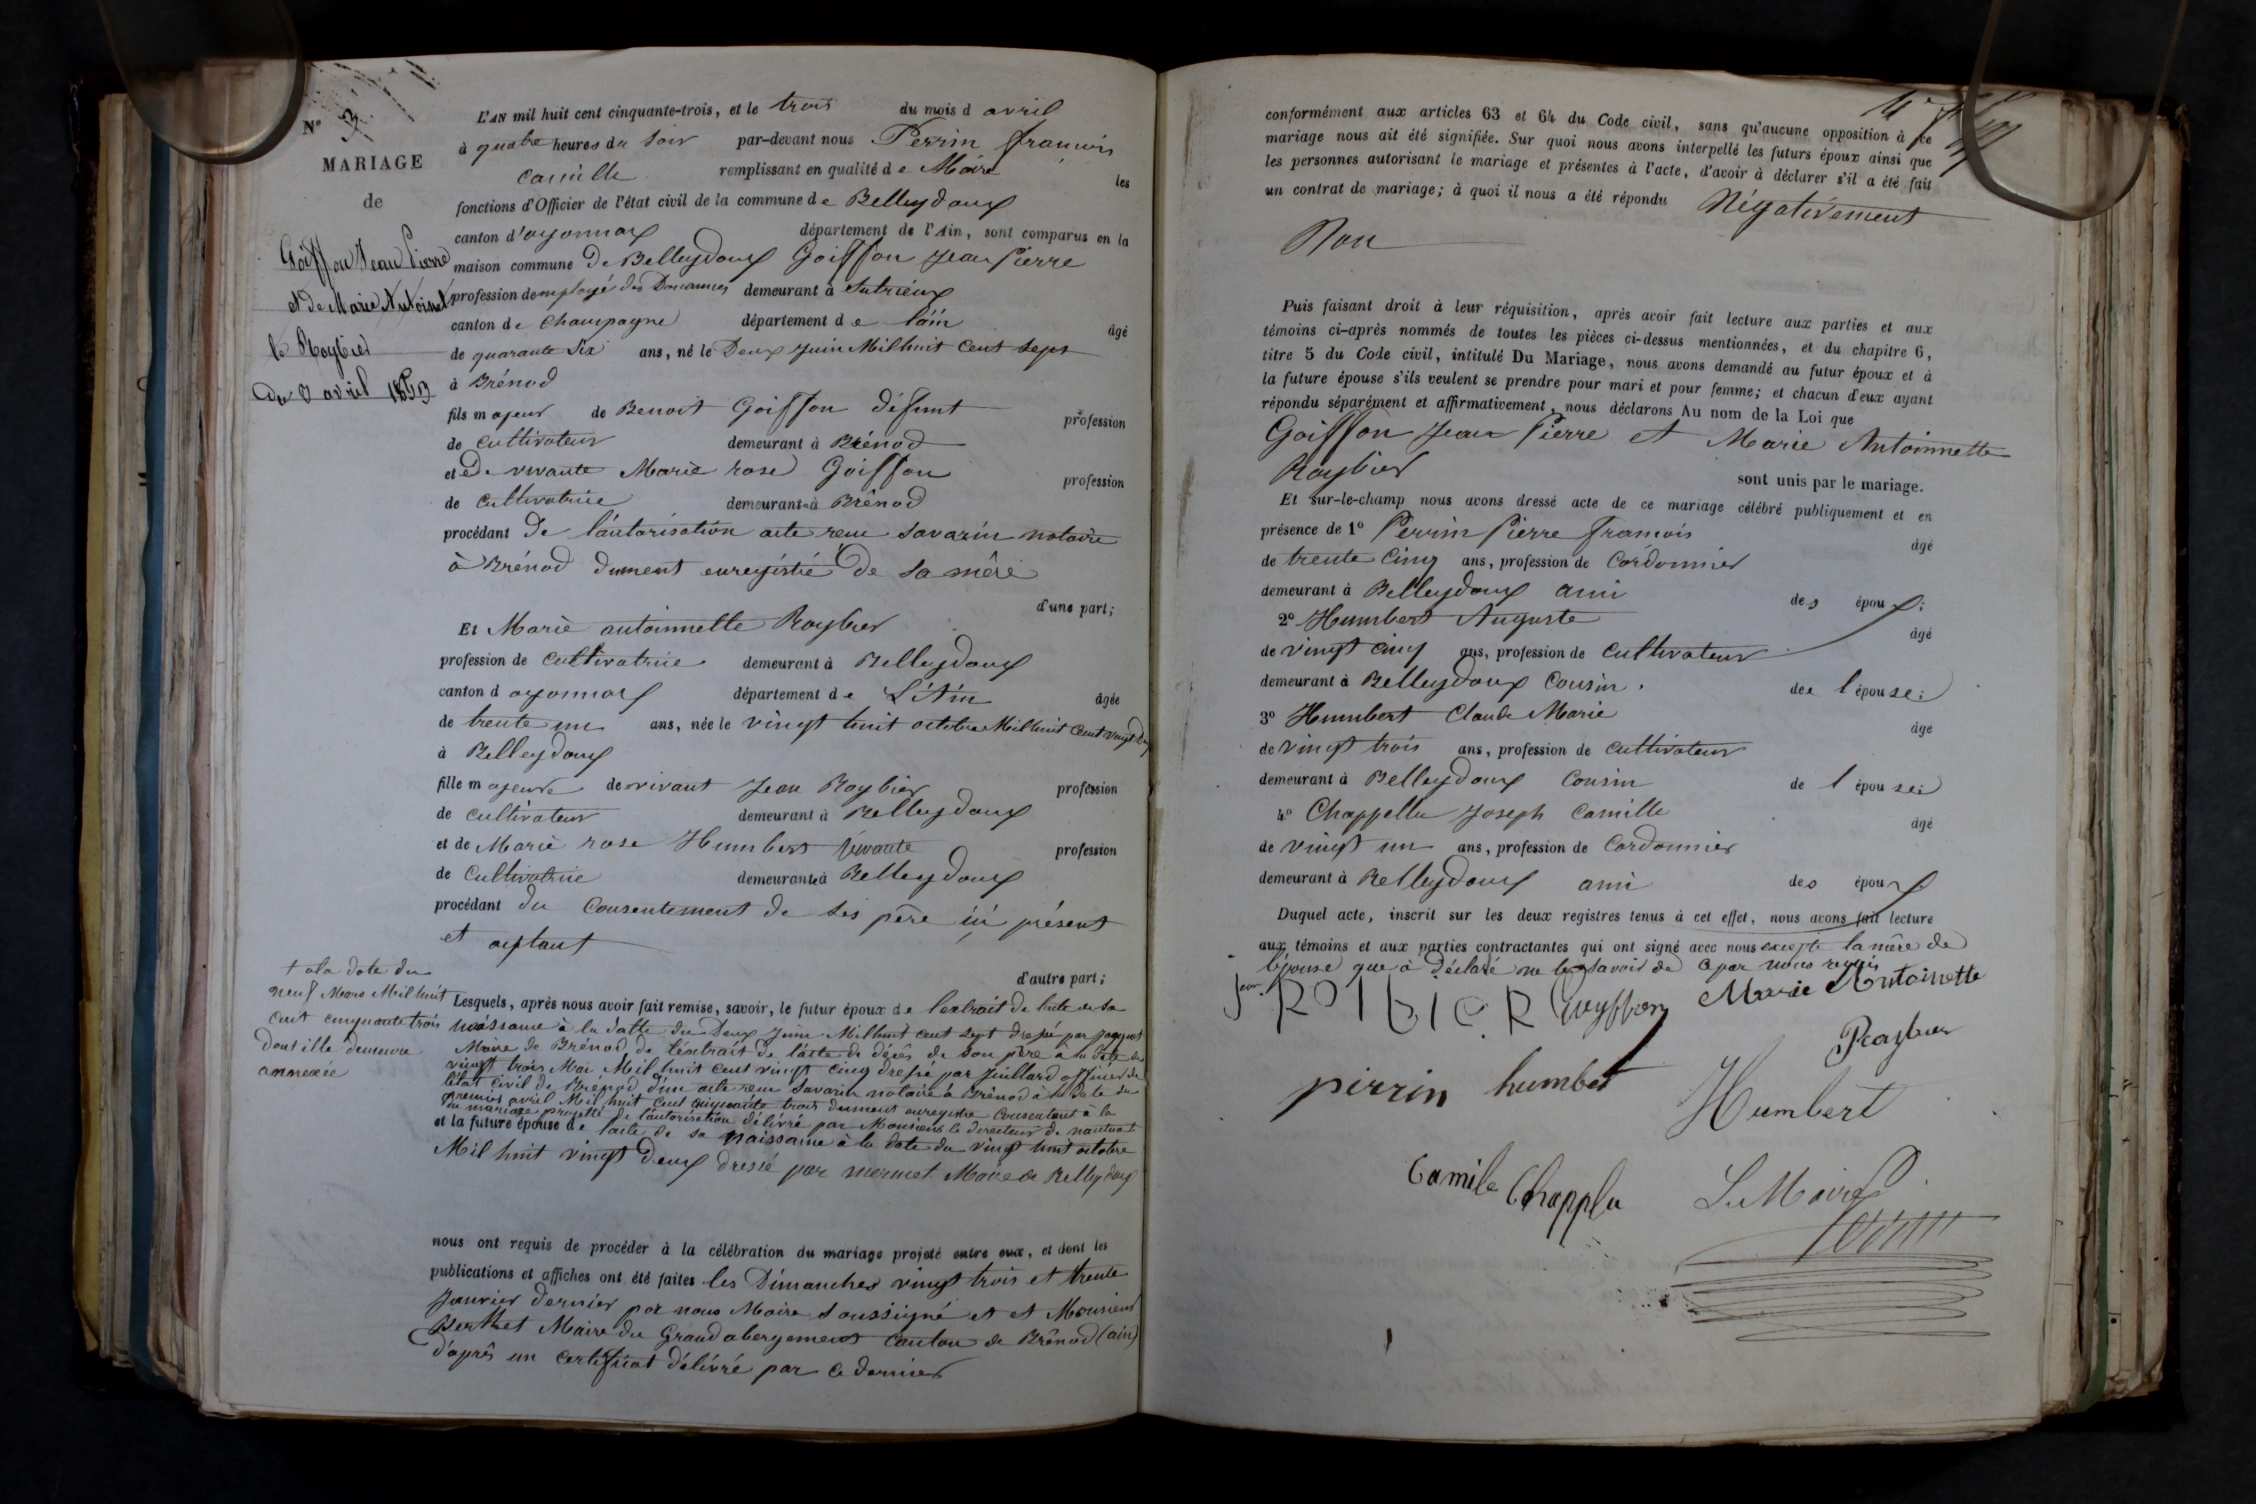 N° 3
MARIAGE
de
Goiffon Jean Pierre
et de Marie Antoinet
te Roybier
du 3 avril 1853
L'AN mil huit cent cinquante-trois, et le trois du mois d avril
à quatre heures du soir par-devant nous Perrin françois
Camille remplissant en qualité de Maire les
fonctions d'Officier de l'état civil de la commune de Belleydoux
canton d'oyonnax département de l'Ain, sont comparus en la
maison commune De Belleydoux Goiffon Jean Pierre
profession d'employé des Douannes demeurant à Sutrieux
canton de Champagne département de l'ain âgé
de quarante Six ans, né le Deux Juin Mil huit Cent Sept
à Brénod
fils majeur de Benoit Goiffon défunt profession
de Cultivateur demeurant à Brénod
et de vivante Marie rose Goiffon profession
de Cultivatrice demeurant à Brénod
procédant De l'autorisation acte recu Savarin notaire
à Brénod dument enregistré De Sa mère
d'une part;
Et Marie antoinnette Roybier
profession de Cultivatrice demeurant à Belleydoux
canton d oyonnax département de L'Ain âgée
de trente un ans, née le vingt huit octobre Mil huit Cent vingt deux
à Belleydoux
fille majeure de vivant Jean Roybier profession
de Cultivateur demeurant à Belleydoux
et de Marie rose Humbert vivante profession
de Cultivatrice demeurante à Belleydoux
procédant du Consentement de Ses père ici présent
et aceptant
d'autre part;
+ a la date du
neuf Mars Mil huit
Cent cinquante trois
dont elle demeure
annexée
Lesquels, après nous avoir fait remise, savoir, le futur époux de l'extrait de l'acte de sa
naissance à la datte du Deux Juin Mil huit cent Sept dressé par Jacquet
Maire de Brénod de l'éxtrait de l'acte de décès de Son père à la date du
vingt trois Mai Mil huit cent vingt cinq dressé par Juillard officier de
l'état civil de Brénod d'un acte recu Savarin notaire à Brénod à la date du
premier avril Mil huit Cent cinquante trois dument enregistré Consentant à la
du mariage projetté de l'autorisation délivré par Monsieur le directeur de nantua +
et la future épouse de l'acte de sa naissance à la date du vingt huit octobre
Mil huit vingt Deux dressé par mermet Maire de Belleydoux
nous ont requis de procéder à la célébration du mariage projeté entre eux, et dont les
publications et affiches ont été faites les Dimanches vingt trois et trente
Janvier dernier par nous Maire Soussigné et et Monsieur
Berthet Maire du Grand abergement Canton de Brénod (ain)
d'après un Certificat délivré par ce dernier
conformément aux articles 63 et 64 du Code civil, sans qu'aucune opposition à ce
mariage nous ait été signifiée. Sur quoi nous avons interpellé les futurs époux ainsi que
les personnes autorisant le mariage et présentes à l'acte, d'avoir à déclarer s'il a été fait
un contrat de mariage; à quoi il nous a été répondu Négativement
Non
Puis faisant droit à leur réquisition, après avoir fait lecture aux parties et aux
témoins ci-après nommés de toutes les pièces ci-dessus mentionnées, et du chapitre 6,
titre 5 du Code civil, intitulé Du Mariage, nous avons demandé au futur époux et à
la future épouse s'ils veulent se prendre pour mari et pour femme; et chacun d'eux ayant
répondu séparément et affirmativement, nous déclarons Au nom de la Loi que
Goiffon Jean Pierre et Marie Antoinnette
Roybier sont unis par le mariage.
Et sur-le-champ nous avons dressé acte de ce mariage célébré publiquement et en
présence de 1° Perrin Pierre françois âgé
de trente Cinq ans, profession de Cordonnier
demeurant à Belleydoux ami des époux;
2° Humbert Auguste âgé
de vingt cinq ans, profession de Cultivateur
demeurant à Belleydoux Cousin de l épouse;
3° Humbert Claude Marie âgé
de vingt trois ans, profession de Cultivateur
demeurant à Belleydoux Cousin de l épouse;
4° Chappellu Joseph Camille âgé
de vingt un ans, profession de Cordonnier
demeurant à Belleydoux ami des époux
Duquel acte, inscrit sur les deux registres tenus à cet effet, nous avons fait lecture
aux témoins et aux parties contractantes qui ont signé avec nous excepté la mère de
l'épouse que à déclaré ne le Savoir de ce par nous requis
Jean ROIbIeR Goyffon Marie Antoinette
Raybier
pirrin humbert Humbert
Camile Chapplu Le Maire
Perrin